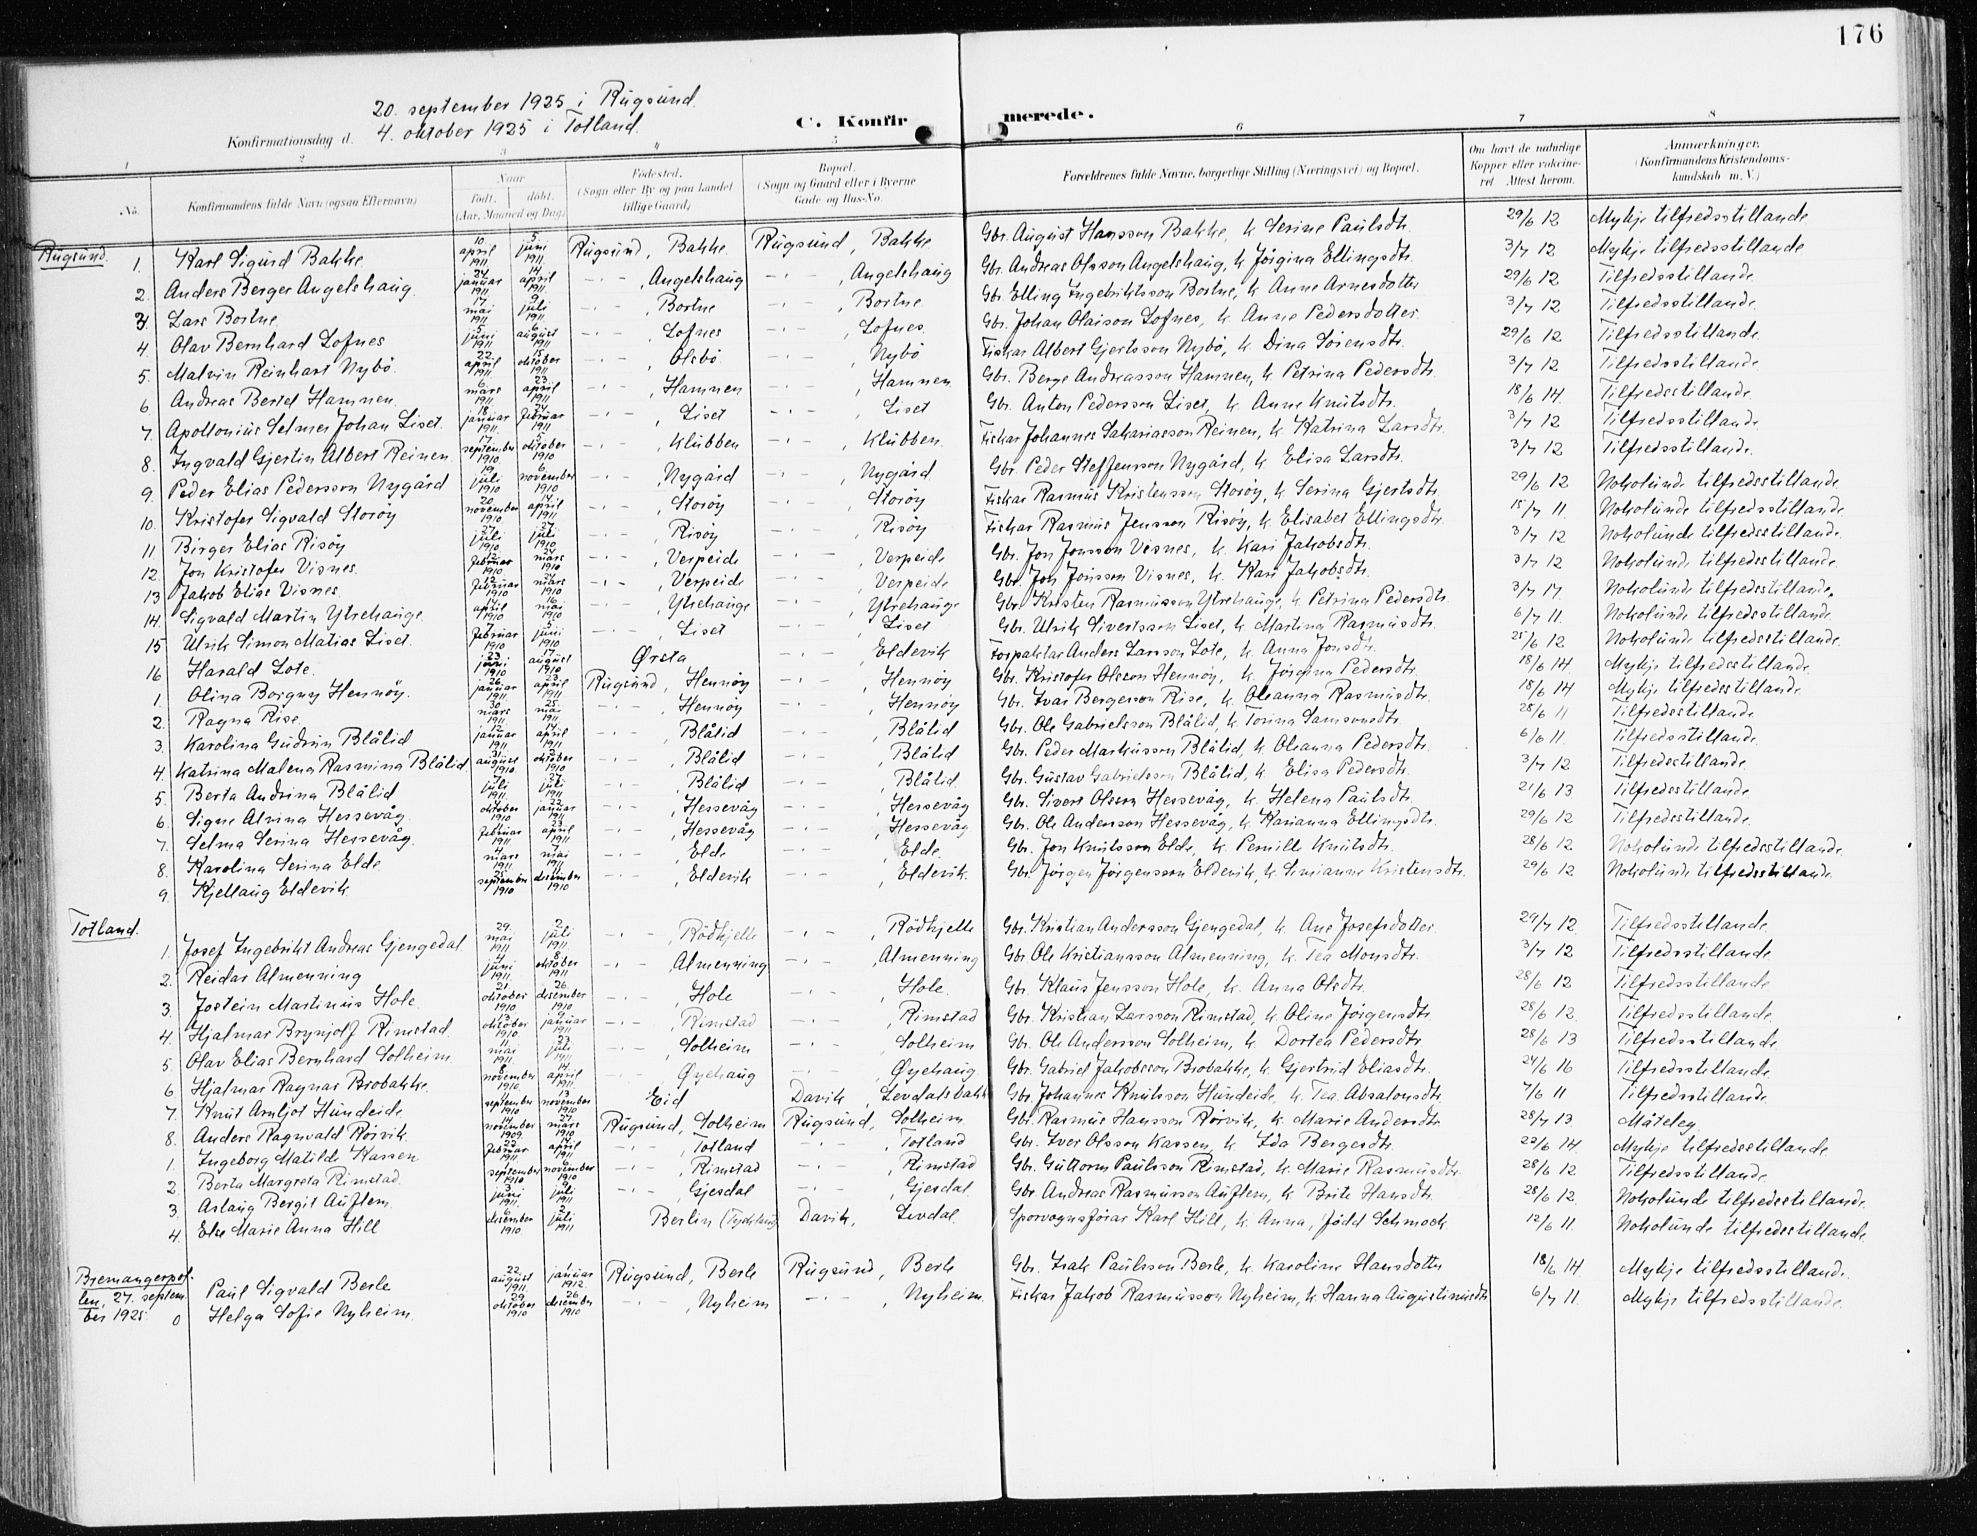 176
20. september 1925 i Rugsund.
Konfirmationsdag d. 4. oktober 1925 i Totland.
C. Konfirmerede.
1 2 3 4 5 6 7 8
No. Konfirmandens fulde Navn (ogsaa Efternavn) Naar født. døbt. (Aar, Maaned og Dag) Fødested. (Sogn eller By og paa Landet tillige Gaard) Bopæl. (Sogn og Gaard eller i Byerne Gade og Hus-No. Forældrenes fulde Navne, borgerlige Stilling (Næringsvei) og Bopæl. Om havt de naturlige Kopper eller vakcineret. Attest herom. Anmærkninger. (Konfirmandens Kristendomskundskab m. V.)
Rugsund.
1. Karl Sigurd Bakke 10 april 1911 5. juni 1911 Rugsund, Bakke Rugsund, Bakke Gbr. August Hansson Bakke, k Serine Paulsdtr. 29/6 12 Mykje tilfredsstillande
2. Anders Berger Angelshaug. 24 januar 1911 14 april 1911 -"- , Angelshaug -"- , Angelshaug Gbr. Andreas Olsson Angelshaug, k Jörgina Ellingsdtr. 3/7 12 Mykje tilfredsstillande
3. Lars Bortne 17. mai 1911 9 juli 1911 -"- , Bortne -"- , Bortne Gbr. Elling Ingebriktsson Bortne, k Anne Arnesdotter 29/6 12 Tilfredsstillande.
4. Olav Bernhard Lofnes 5 juni 1911 6 august 1911 -"- , Lofnes -"- , Lofnes Gbr. Johan Olaison Lofnes, k Anne Pedersdotter 3/7 12 Tilfredsstillande.
5. Malvin Reinhart Nybö. 22 april 1911 15 oktober 1911 -"- , Olsbö -"- , Nybö Fiskar Albert Gjertsson Nybö, k Dina Sörensdtr. 29/6 12 Tilfredsstillande
6. Andreas Bertel Hamnen. 6. mars 1911 23 april 1911 -"- , Hamnen -"- , Hamnen Gbr. Berge Andreasson Hamnen, k Petrina Pedersdtr. 3/7 12 Tilfredsstillande.
7. Apollonius Selmer Johan Liset. 18 januar 1911 24 februar 1911 -"- , Liset -"- , Liset Gbr. Anton Pedersson Liset, k Anne Knutsdtr. 18/6 14 Tilfredsstillande.
8. Ingvald Gjertin Albert Reinen 17. september 1910 5. oktober 1910 -"- , Klubben -"- , Klubben. Fiskar Johannes Sakariasson Reinen, k Katrina Larsdtr. 3/7 12 Tilfredsstillande.
9. Peder Elias Pedersson Nygård 19 juli 1910 6. november 1910 -"- , Nygård -"- , Nygård Gbr. Peder Steffensson Nygård, k Elisa Larsdtr. 3/7 12 Tilfredsstillande.
10. Kristofer Sigvald Storöy 20 november 1910 14 april 1911 -"- , Storöy -"- , Storöy Fiskar Rasmus Kristensson Storöy, k Serina Gjertsdtr. 29/6 12 Nokolunde tilfredsstillande
11 Birger Elias Risöy 27. juli 1910 -"- , Risöy -"- , Risöy Fiskar Rasmus Jensson Risöy, k Elisabet Ellingsdtr. 15/7 11 Nokolunde tilfredsstillande.
12. Jon Kristofer Visnes. 12 februar 1910 24 mars 1910 -"- , Verpeide -"- , Verpeide Gbr. Jon Jonsson Visnes, k. Kari Jakobsdtr. 3/7 12 Nokolunde tilfredsstillande.
13 Jakob Elias Visnes. 12 februar 1910 24 mars 1910 -"- , Verpeide -"- , Verpeide Gbr. Jon Jonsson Visnes, k. Kari Jakobsdtr. 3/7 12 Nokolund tilfredsstillande.
14. Sigvald Martin Ytrehauge. 14 april 1910 16 mai 1910 -"- , Ytrehauge -"- , Ytrehauge Gbr. Kristen Rasmusson Ytrehauge, k Petrina Pedersdtr. 3/7 17 Nokolunde tilfredsstillande.
15 Ulrik Simon Matias Liset. 7 februar 1910 5. juni 1910 -"- , Liset -"- , Liset Gbr. Ulrik Sivertsson Liset, k Martina Rasmusdtr. 6/7 11. Nokolunde tilfredsstillande.
16 Harald Lote. 23 juni 1910 17. august 1910 Örsta -"- , Eldevik Forpaktar Anders Larsson Lote, k. Anna Jonsdtr. 25/6 12 Nokolunde tilfredsstillande.
1. Olina Borgny Hennöy. 26. januar 1911 23 april 1911 Rugsund, Hennöy -"- , Hennöy Gbr. Kristofer Olsson Hennöy, k Jörgina Pedersdtr. 18/6 14 Mykje tilfredsstillande.
2. Ragna Rise 30 mars 1911 25. mai 1911 -"- , Hennöy -"- , Hennöy Gbr. Ivar Bergerson Rise, k. Oleanna Rasmusdtr. 18/6 14 Mykje tilfredsstillande.
3. Karolina Gudrun Blålid 12 januar 1911 14 april 1911 -"- , Blålid -"- , Blålid Gbr. Ole Gabrielsson Blålid, k Torina Samsonsdtr. 28/6 11 Tilfredsstillande
4. Katrina Malena Rasmina Blålid 31 august 1910 2. oktober 1910 -"- , Blålid -"- , Blålid Gbr. Peder Markusson Blålid, k Oleanna Pedersdtr. 6/6 11. Tilfredsstillande.
5. Berta Andrina Blålid 7. juli 1911 27. juli 1911 -"- , Blålid -"- , Blålid Gbr. Gustav Gabrielsson Blålid, k. Elisa Pedersdtr. 3/7 12 Tilfredsstillande.
6. Signe Alvina Hessevåg 7 oktober 1910 22 januar 1911 -"- , Hessevåg -"- , Hessevåg Gbr. Sivert Olsson Hessevåg, k. Helena Paulsdtr. 21/6 13 Tilfredsstillande
7. Selma Serina Hessevåg. 11 februar 1911 23 april 1911 -"- , Hessevåg -"- , Hessevåg Gbr. Ole Andersson Hessevåg, k Marianna Ellingsdtr. 29/6 12 Tilfredsstillande.
8. Karolina Serina Elde. 4 mars 1911 7. mai 1911 -"- , Elde -"- , Elde. Gbr. Jon Knutsson Elde, k Pernille Knutsdtr. 28/6 12 Nokolunde tilfredsstillande.
9. Kjellaug Eldevik 25 september 1910 desember 1910 -"- , Eldevik -"- , Eldevik Gbr. Jörgen Jörgensson Eldevik, k. Simianne Kristensdtr. 29/6 12 Nokolunde tilfredsstillande.
Totland.
1. Josef Ingebrikt Andreas Gjengedal 29. mai 1911 2. juli 1911. -"- , Rödkjelle -"- , Rödkjelle Gbr. Kristian Andersson Gjengedal, k. Ane Josefsdotter 29/7 12 Tilfredsstillande.
2. Reidar Almenning 4 juni 1911 8 oktober 1911 -"- , Almenning -"- , Almenning Gbr. Ole Kristiansson Almenning, k. Tea Monsdtr. 3/7 12 Tilfredsstillande
3. Jostein Martinus Hole. 21. oktober 1910 26. desember 1910 -"- , Hole -"- , Hole. Gbr. Klaus Jensson Hole, k. Anna Olsdtr. 28/6 12 Tilfredsstillande
4. Hjalmar Brynjolf Rimstad. 13 oktober 1910 9 januar 1911 -"- , Rimstad -"- , Rimstad Gbr. Kristian Larsson Rimstad, k Oline Jörgensdtr. 28/6 12. Tilfredsstillande.
5. Olav Elias Bernhard Solheim 11. mai 1911. 23 juli 1911 -"- , Solheim -"- , Solheim Gbr. Ole Andersson Solheim, k. Dortea Pedersdtr 28/6 13 Tilfredsstillande
6 Hjalmar Ragnar Brobakke. 8. november 1910 14 april 1911. -"- , Øyehaug -"- , Øyehaug Gbr. Gabriel Jakobsson Brobakke, k Gjertrud Eliasdtr. 24/6 16 Tilfredsstillande.
7. Knut Arnljot Hundeide. september 1910 13 november 1910 Eid Davik, Levdalsbakk Gbr. Johannes Knutsson Hundeide, k. Tea Absalonsdtr. 7/6 11 Tilfredsstillande.
8. Anders Ragnvald Rörvik. 14 november 1909. 27. mars 1910 Rugsund, Solheim Rugsund, Solheim Gbr. Rasmus Hansson Rörvik, k. Marie Andersdtr 28/7 13 Måteleg.
1. Ingeborg Matilde Kassen 22. februar 1911 14. april 1911 -"- , Totland -"- , Totland Gbr. Iver Olsson Kassen, k. Ida Bergersdtr. 22/6 14. Mykje tilfredsstillande
2. Berta Margreta Rimstad. september 1910 6. november 1910 -"- , Rimstad -"- , Rimstad Gbr. Guttorm Paulsson Rimstad, k. Marie Rasmusdtr. 28/6 12 Tilfredsstillande.
3. Aslaug Bergit Auflem. 3 juni 1911 9 juli 1911 -"- , Gjesdal -"- , Gjesdal. Gbr. Andreas Rasmusson Auflem, k Brite Hansdtr. 28/6 12. Nokolunde tilfredsstillande.
4. Else Marie Anna Hill 6. desember 1910 2. juli 1911 Berlin (Tyskland) Davik, Levdal. Sporvognsförar Karl Hill, k. Anna, född Schmock. 12/6 11. Nokolunde tilfredsstillande.
Bremangerpollen, 27. september 1925
Paul Sigvald Berle 22. august 1911. 1. januar 1912. Rugsund, Berle Rugsund, Berle Gbr. Isak Paulsson Berle, k. Karoline Hansdotter 18/6 14. Mykje tilfredsstillande.
0 Helga Sofie Nyheim. 29. oktober 1910 26 desember 1910 -"- , Nyheim -"- , Nyheim. Fiskar Jakob Rasmusson Nyheim, k Hanna Augustinusdtr 6/7 11. Mykje tilfredsstillande.